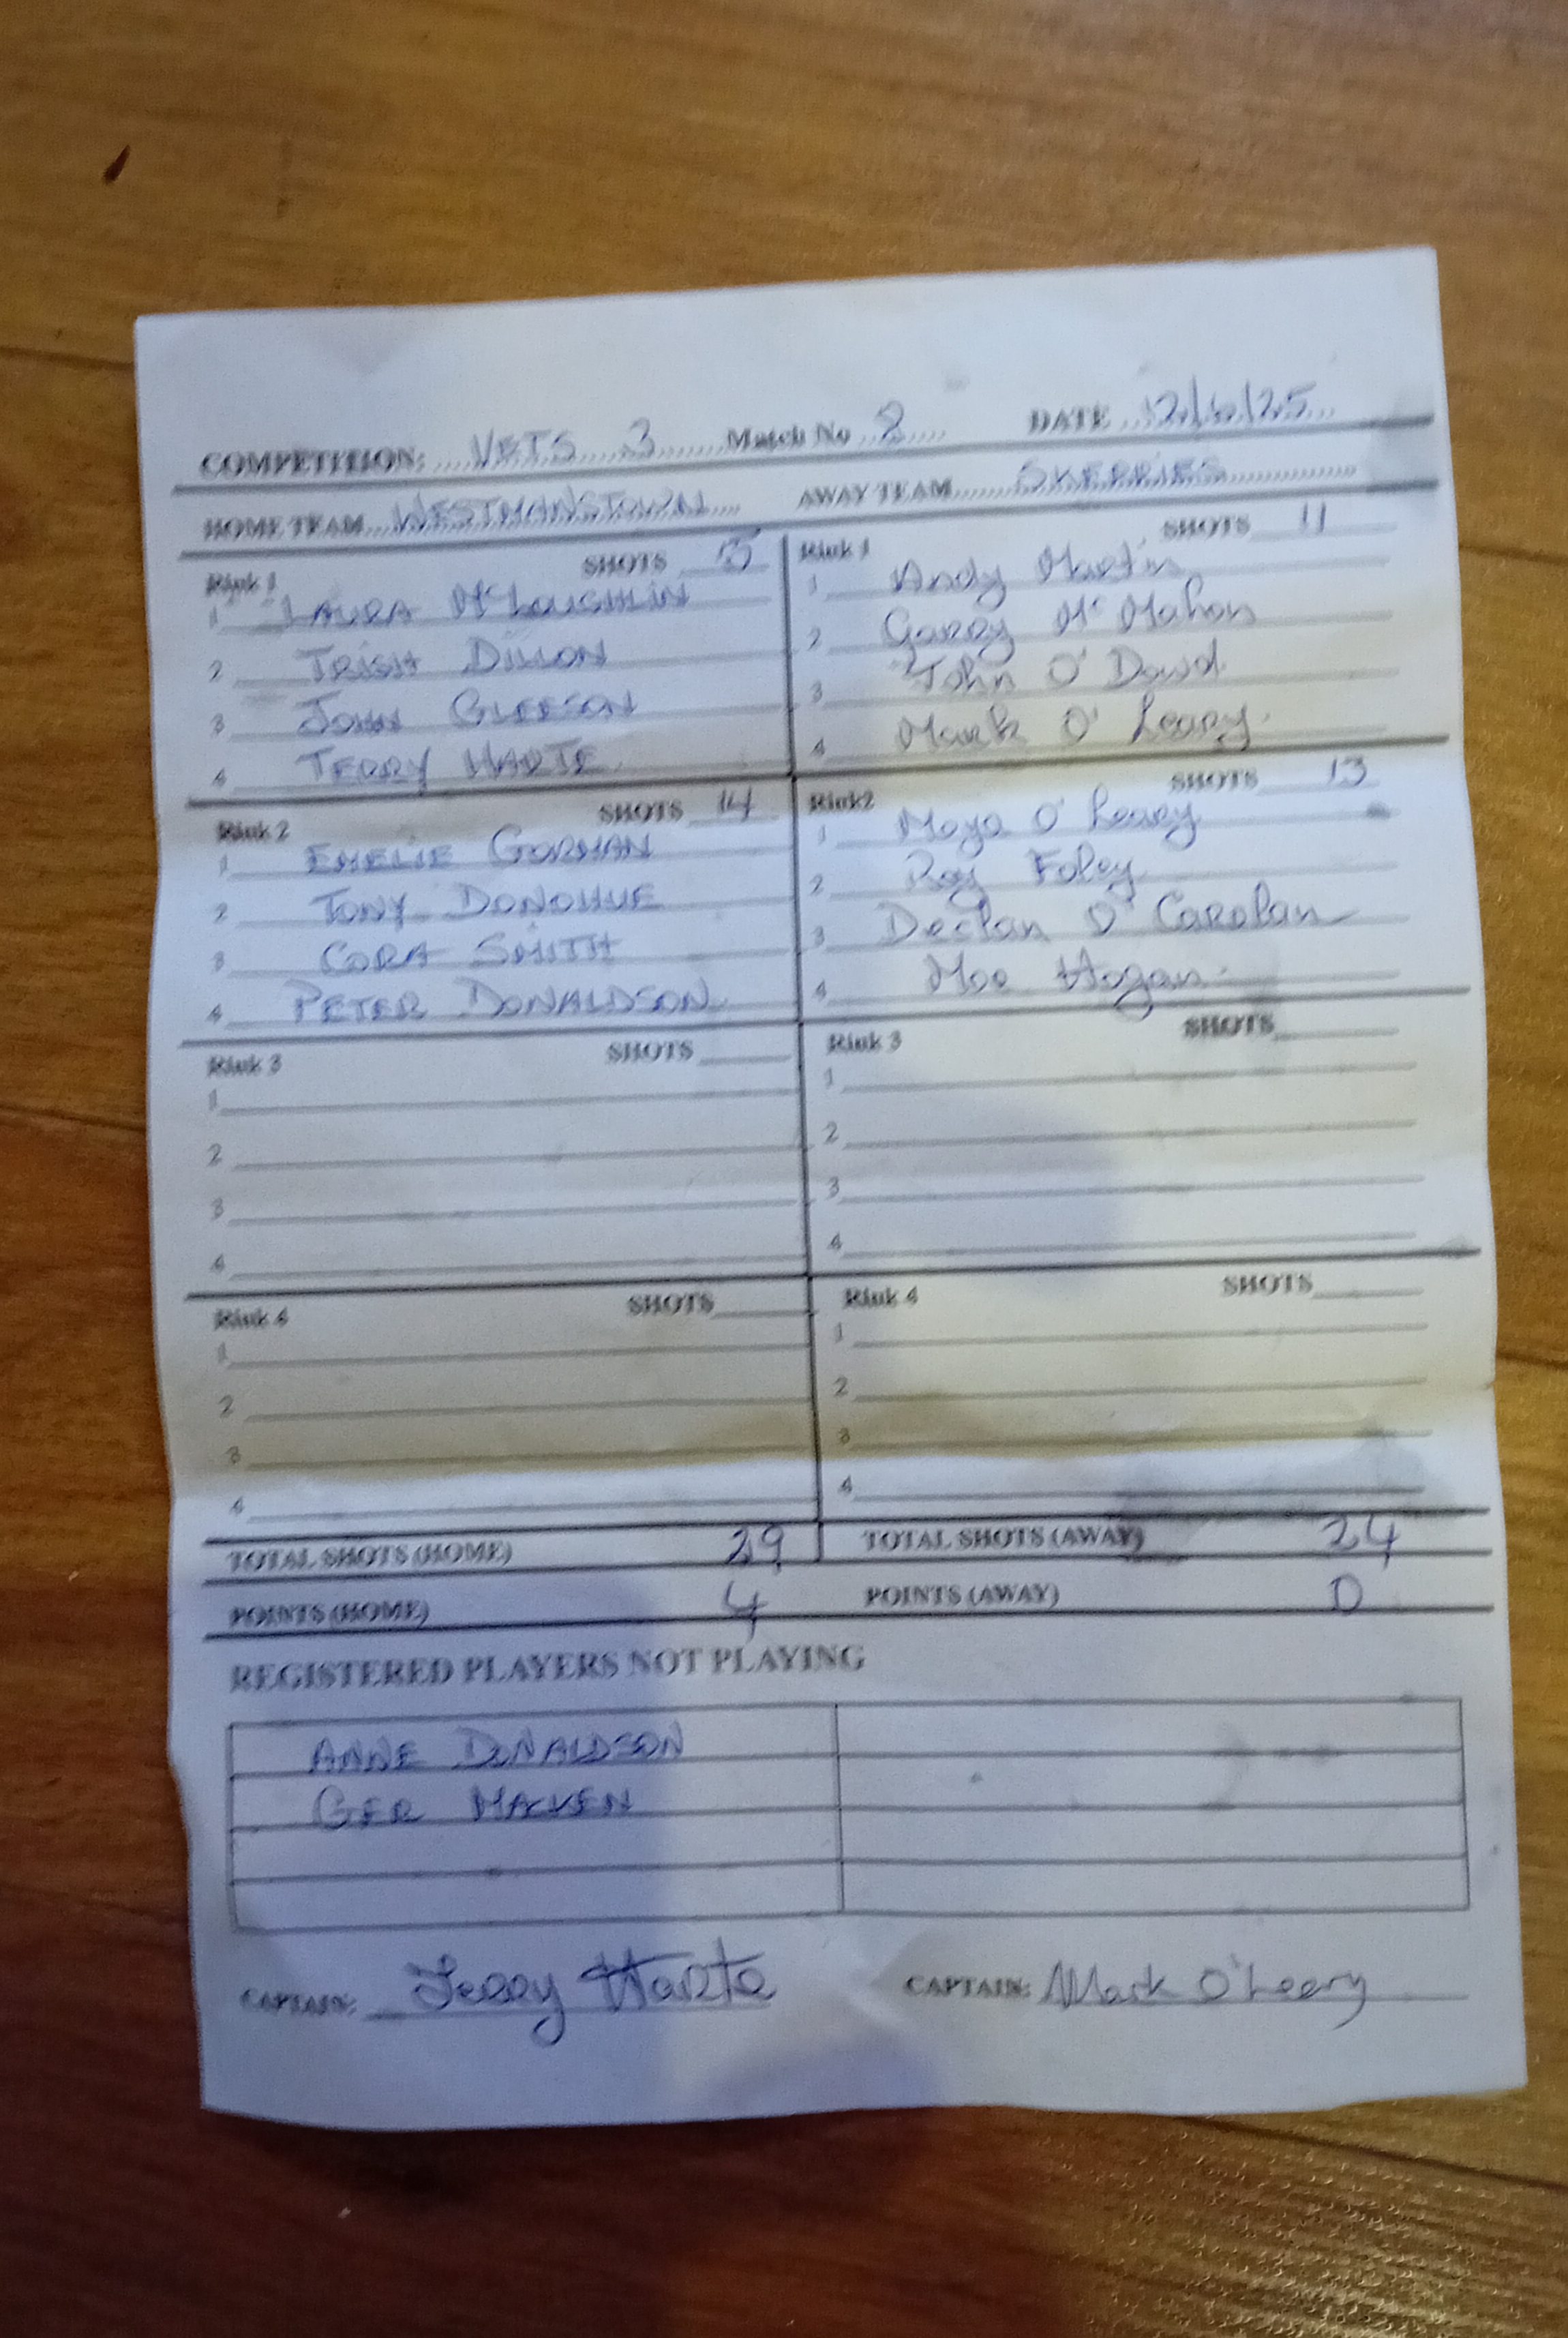 COMPETITION: VETS 3 Match No 8 DATE 12/6/25
HOME TEAM WESTMANSTOWN AWAY TEAM SKERRIES
Rink 1 SHOTS 15 Rink 1 SHOTS 11
1 LAURA McLOUGHLIN 1 Andy Martin
2 TRISH DILLON 2 Garry Mc Mahon
3 JOHN GLEESON 3 John O' Dowd
4 TERRY HARTE 4 Mark O' Leary
Rink 2 SHOTS 14 Rink2 SHOTS 13
1 EMELIE GORMAN 1 Moya O' Leary
2 TONY DONOHUE 2 Roy Foley
3 CORA SMITH 3 Declan O' Carolan
4 PETER DONALDSON 4 Moe Hogan
Rink 3 SHOTS Rink 3 SHOTS
1 1
2 2
3 3
4 4
Rink 4 SHOTS Rink 4 SHOTS
1 1
2 2
3 3
4 4
TOTAL SHOTS (HOME) 29 TOTAL SHOTS (AWAY) 24
POINTS (HOME) 4 POINTS (AWAY) 0
REGISTERED PLAYERS NOT PLAYING
ANNE DONALDSON
GER
CAPTAIN: Terry Harte CAPTAIN: Mark O'Leary